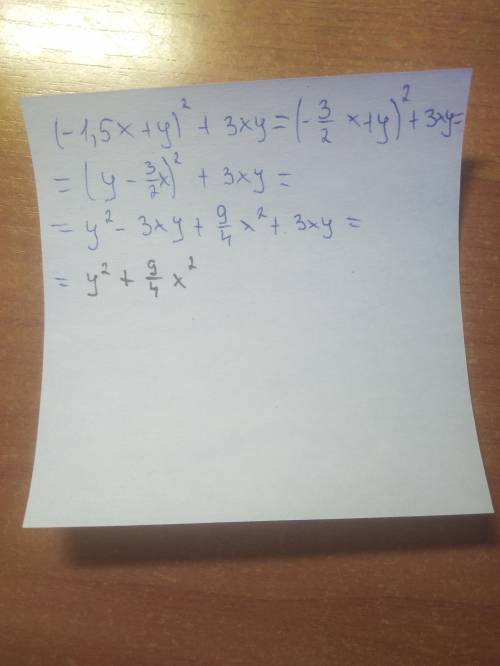 (-1,5x+y)² + 3xy = (-3/2 x+y)² + 3xy =
= (y - 3/2x)² + 3xy =
= y² - 3xy + 9/4 x² + 3xy =
= y² + 9/4 x²